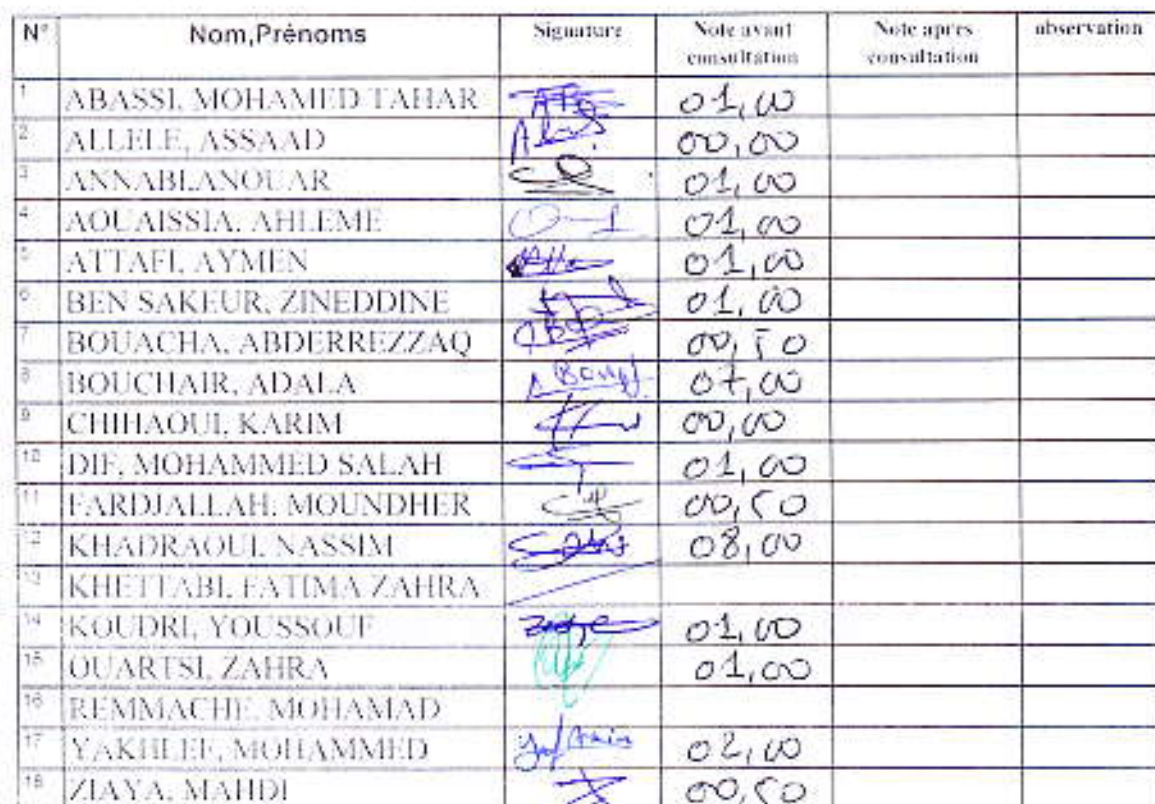 N° Nom,Prénoms Signature Note avant consultation Note apres consultation observation
1 ABASSI, MOHAMED TAHAR 01,00
2 ALLELE, ASSAAD 00,00
3 ANNABI, ANOUAR 01,00
4 AOUAISSIA, AHLEME 01,00
5 ATTAFI, AYMEN 01,00
6 BEN SAKEUR, ZINEDDINE 01,00
7 BOUACHA, ABDERREZZAQ 00,50
8 BOUCHAIR, ADALA 07,00
9 CHIHAOUI, KARIM 00,00
10 DIF, MOHAMMED SALAH 01,00
11 FARDJALLAH, MOUNDHER 00,50
12 KHADRAOUI, NASSIM 08,00
13 KHETTABI, FATIMA ZAHRA
14 KOUDRI, YOUSSOUF 01,00
15 OUARTSI, ZAHRA 01,00
16 REMMACHE, MOHAMAD
17 YAKHLEF, MOHAMMED 02,00
18 ZIAYA, MAHDI 00,50